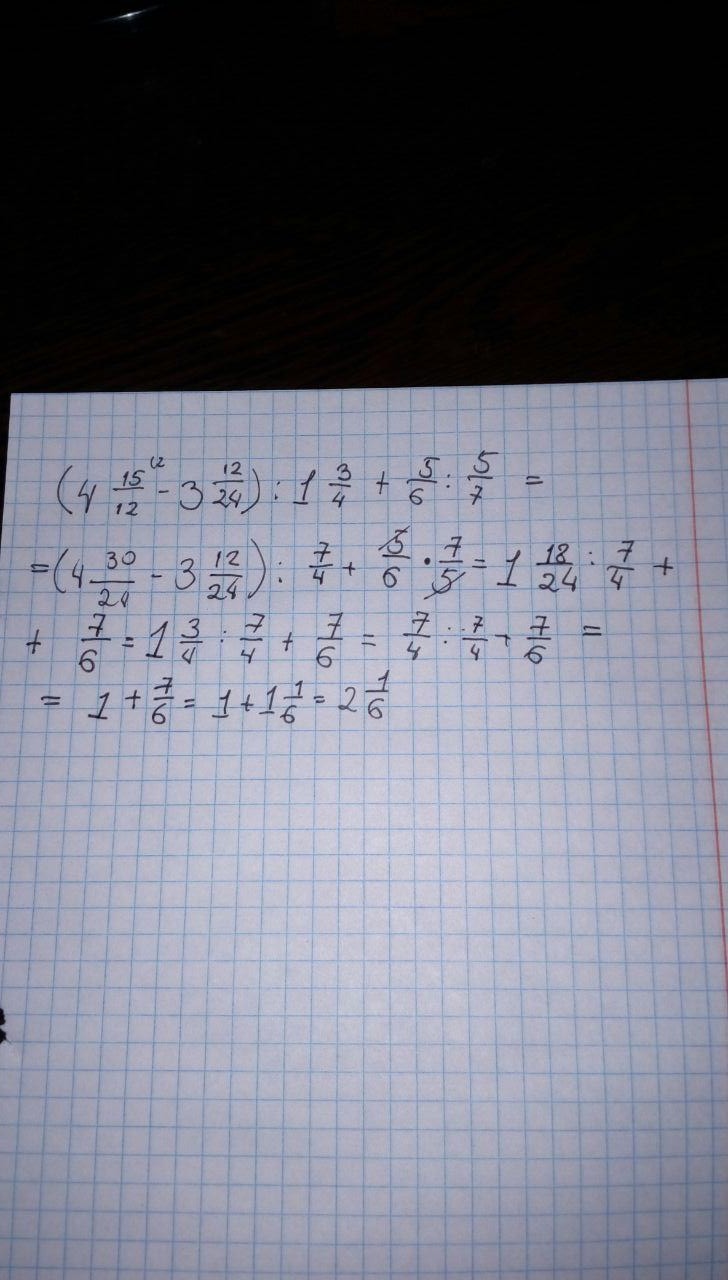 (4 15/12 ⁽² - 3 12/24) : 1 3/4 + 5/6 : 5/7 =
= (4 30/24 - 3 12/24) : 7/4 + 5/6 · 7/5 = 1 18/24 : 7/4 +
+ 7/6 = 1 3/4 : 7/4 + 7/6 = 7/4 : 7/4 + 7/6 =
= 1 + 7/6 = 1 + 1 1/6 = 2 1/6